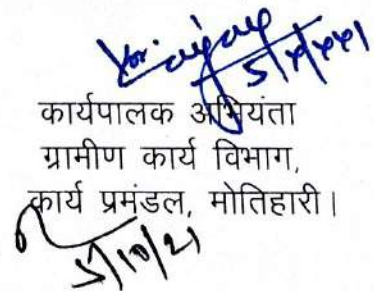 कार्यपालक अभियंता
ग्रामीण कार्य विभाग,
कार्य प्रमंडल, मोतिहारी।
5/10/21